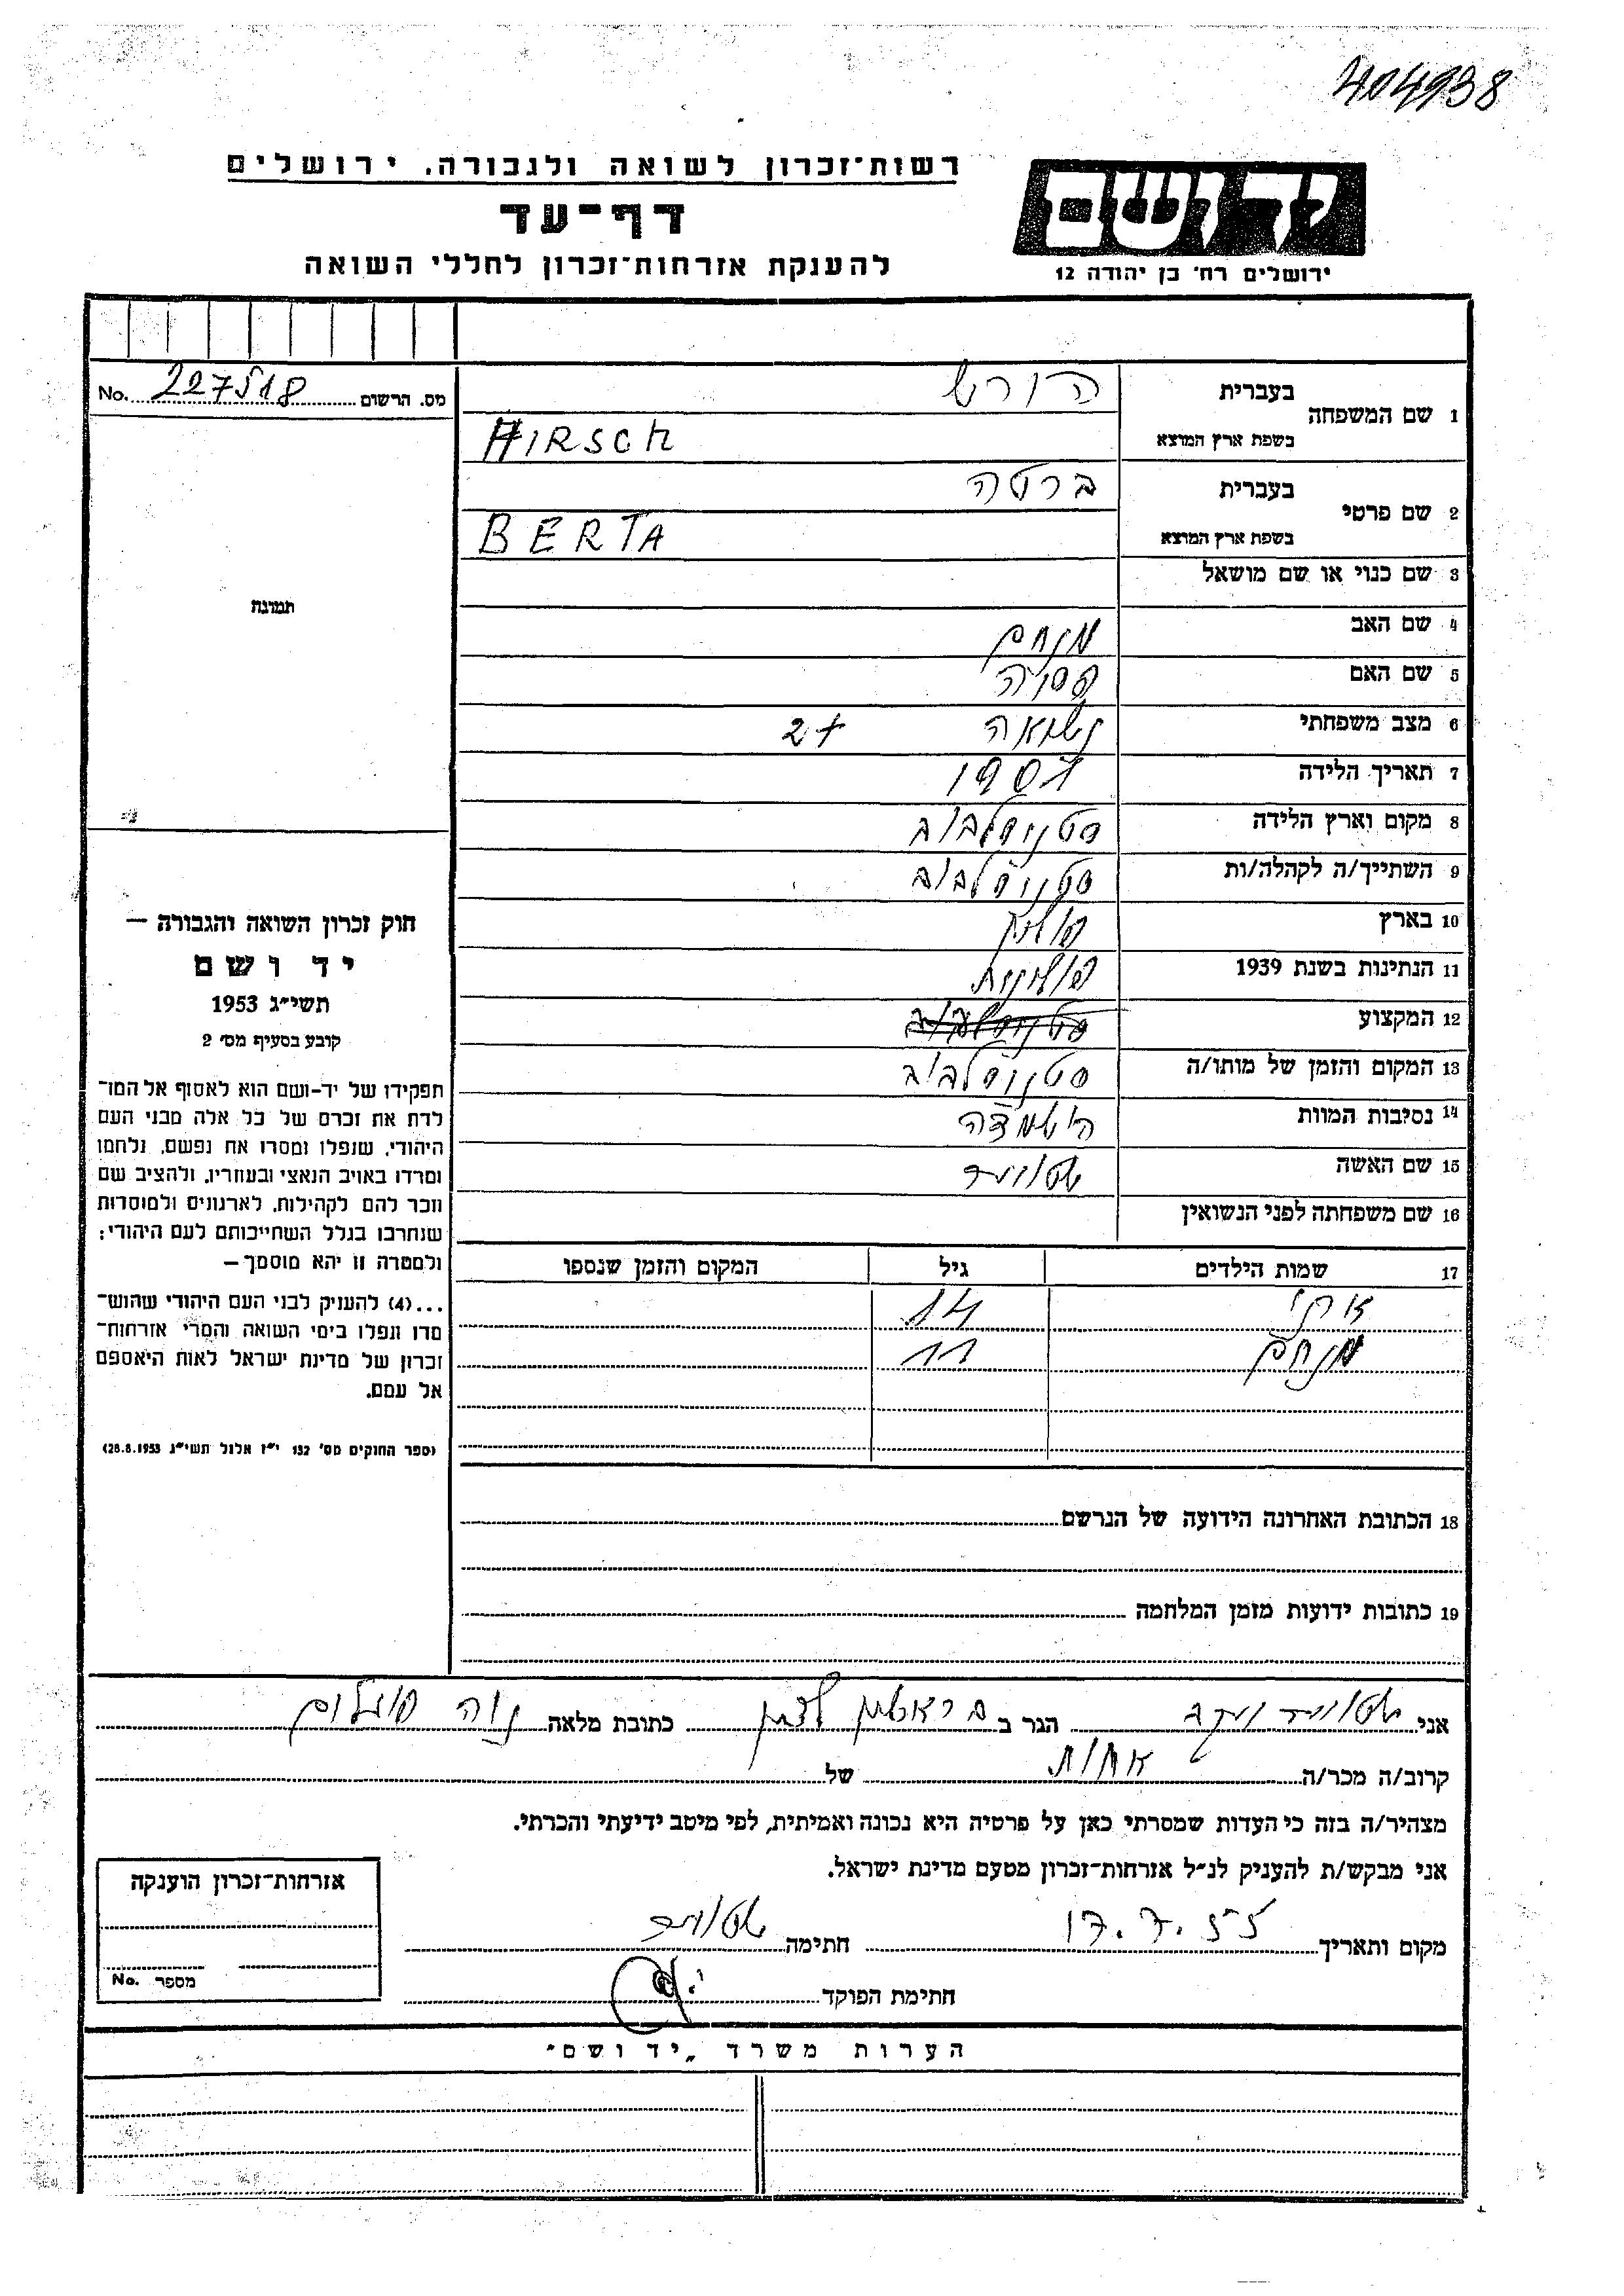 404938
רשות־זכרון לשואה ולגבורה, ירושלים
דף־עד
להענקת אזרחות־זכרון לחללי השואה
יד ושם
ירושלים רח׳ בן יהודה 12
מס. הרשום 227518 No.
1 שם המשפחה
בעברית הורש
בשפת ארץ המוצא HIRSCH
2 שם פרטי
בעברית ברטה
בשפת ארץ המוצא BERTA
3 שם כנוי או שם מושאל
4 שם האב מנחם
5 שם האם
6 מצב משפחתי נשואה +2
7 תאריך הלידה
8 מקום וארץ הלידה סטניסלבוב
9 השתייך/ה לקהלה/ות סטניסלבוב
10 בארץ פולין
11 הנתינות בשנת 1939 פולנית
12 המקצוע סטניסלבוב
13 המקום והזמן של מותו/ה סטניסלבוב
14 נסיבות המוות השמדה
15 שם האשה
16 שם משפחתה לפני הנשואין
17 שמות הילדים גיל המקום והזמן שנספו
14
מנחם 11
18 הכתובת האחרונה הידועה של הנרשם
19 כתובות ידועות מזמן המלחמה
תמונה
חוק זכרון השואה והגבורה —
יד ושם
תשי״ג 1953
קובע בסעיף מס׳ 2
תפקידו של יד-ושם הוא לאסוף אל המו־
לדת את זכרם של כל אלה מבני העם
היהודי, שנפלו ומסרו את נפשם, נלחמו
ומרדו באויב הנאצי ובעוזריו, ולהציב שם
וזכר להם לקהילות, לארגונים ולמוסדות
שנחרבו בגלל השתייכותם לעם היהודי;
ולמטרה זו יהא מוסמך —
...(4) להעניק לבני העם היהודי שהוש־
מדו ונפלו בימי השואה והמרי אזרחות־
זכרון של מדינת ישראל לאות היאספם
אל עמם.
(ספר החוקים מס׳ 132 י״ז אלול תשי״ג 28.8.1953)
אני הגר ב ראשון לציון כתובת מלאה נוה
קרוב/ה מכר/ה אחות של
מצהיר/ה בזה כי העדות שמסרתי כאן על פרטיה היא נכונה ואמיתית, לפי מיטב ידיעתי והכרתי.
אני מבקש/ת להעניק לנ״ל אזרחות־זכרון מטעם מדינת ישראל.
מקום ותאריך 17.7.55 חתימה
חתימת הפוקד
אזרחות־זכרון הוענקה
מספר No.
הערות משרד „יד ושם״